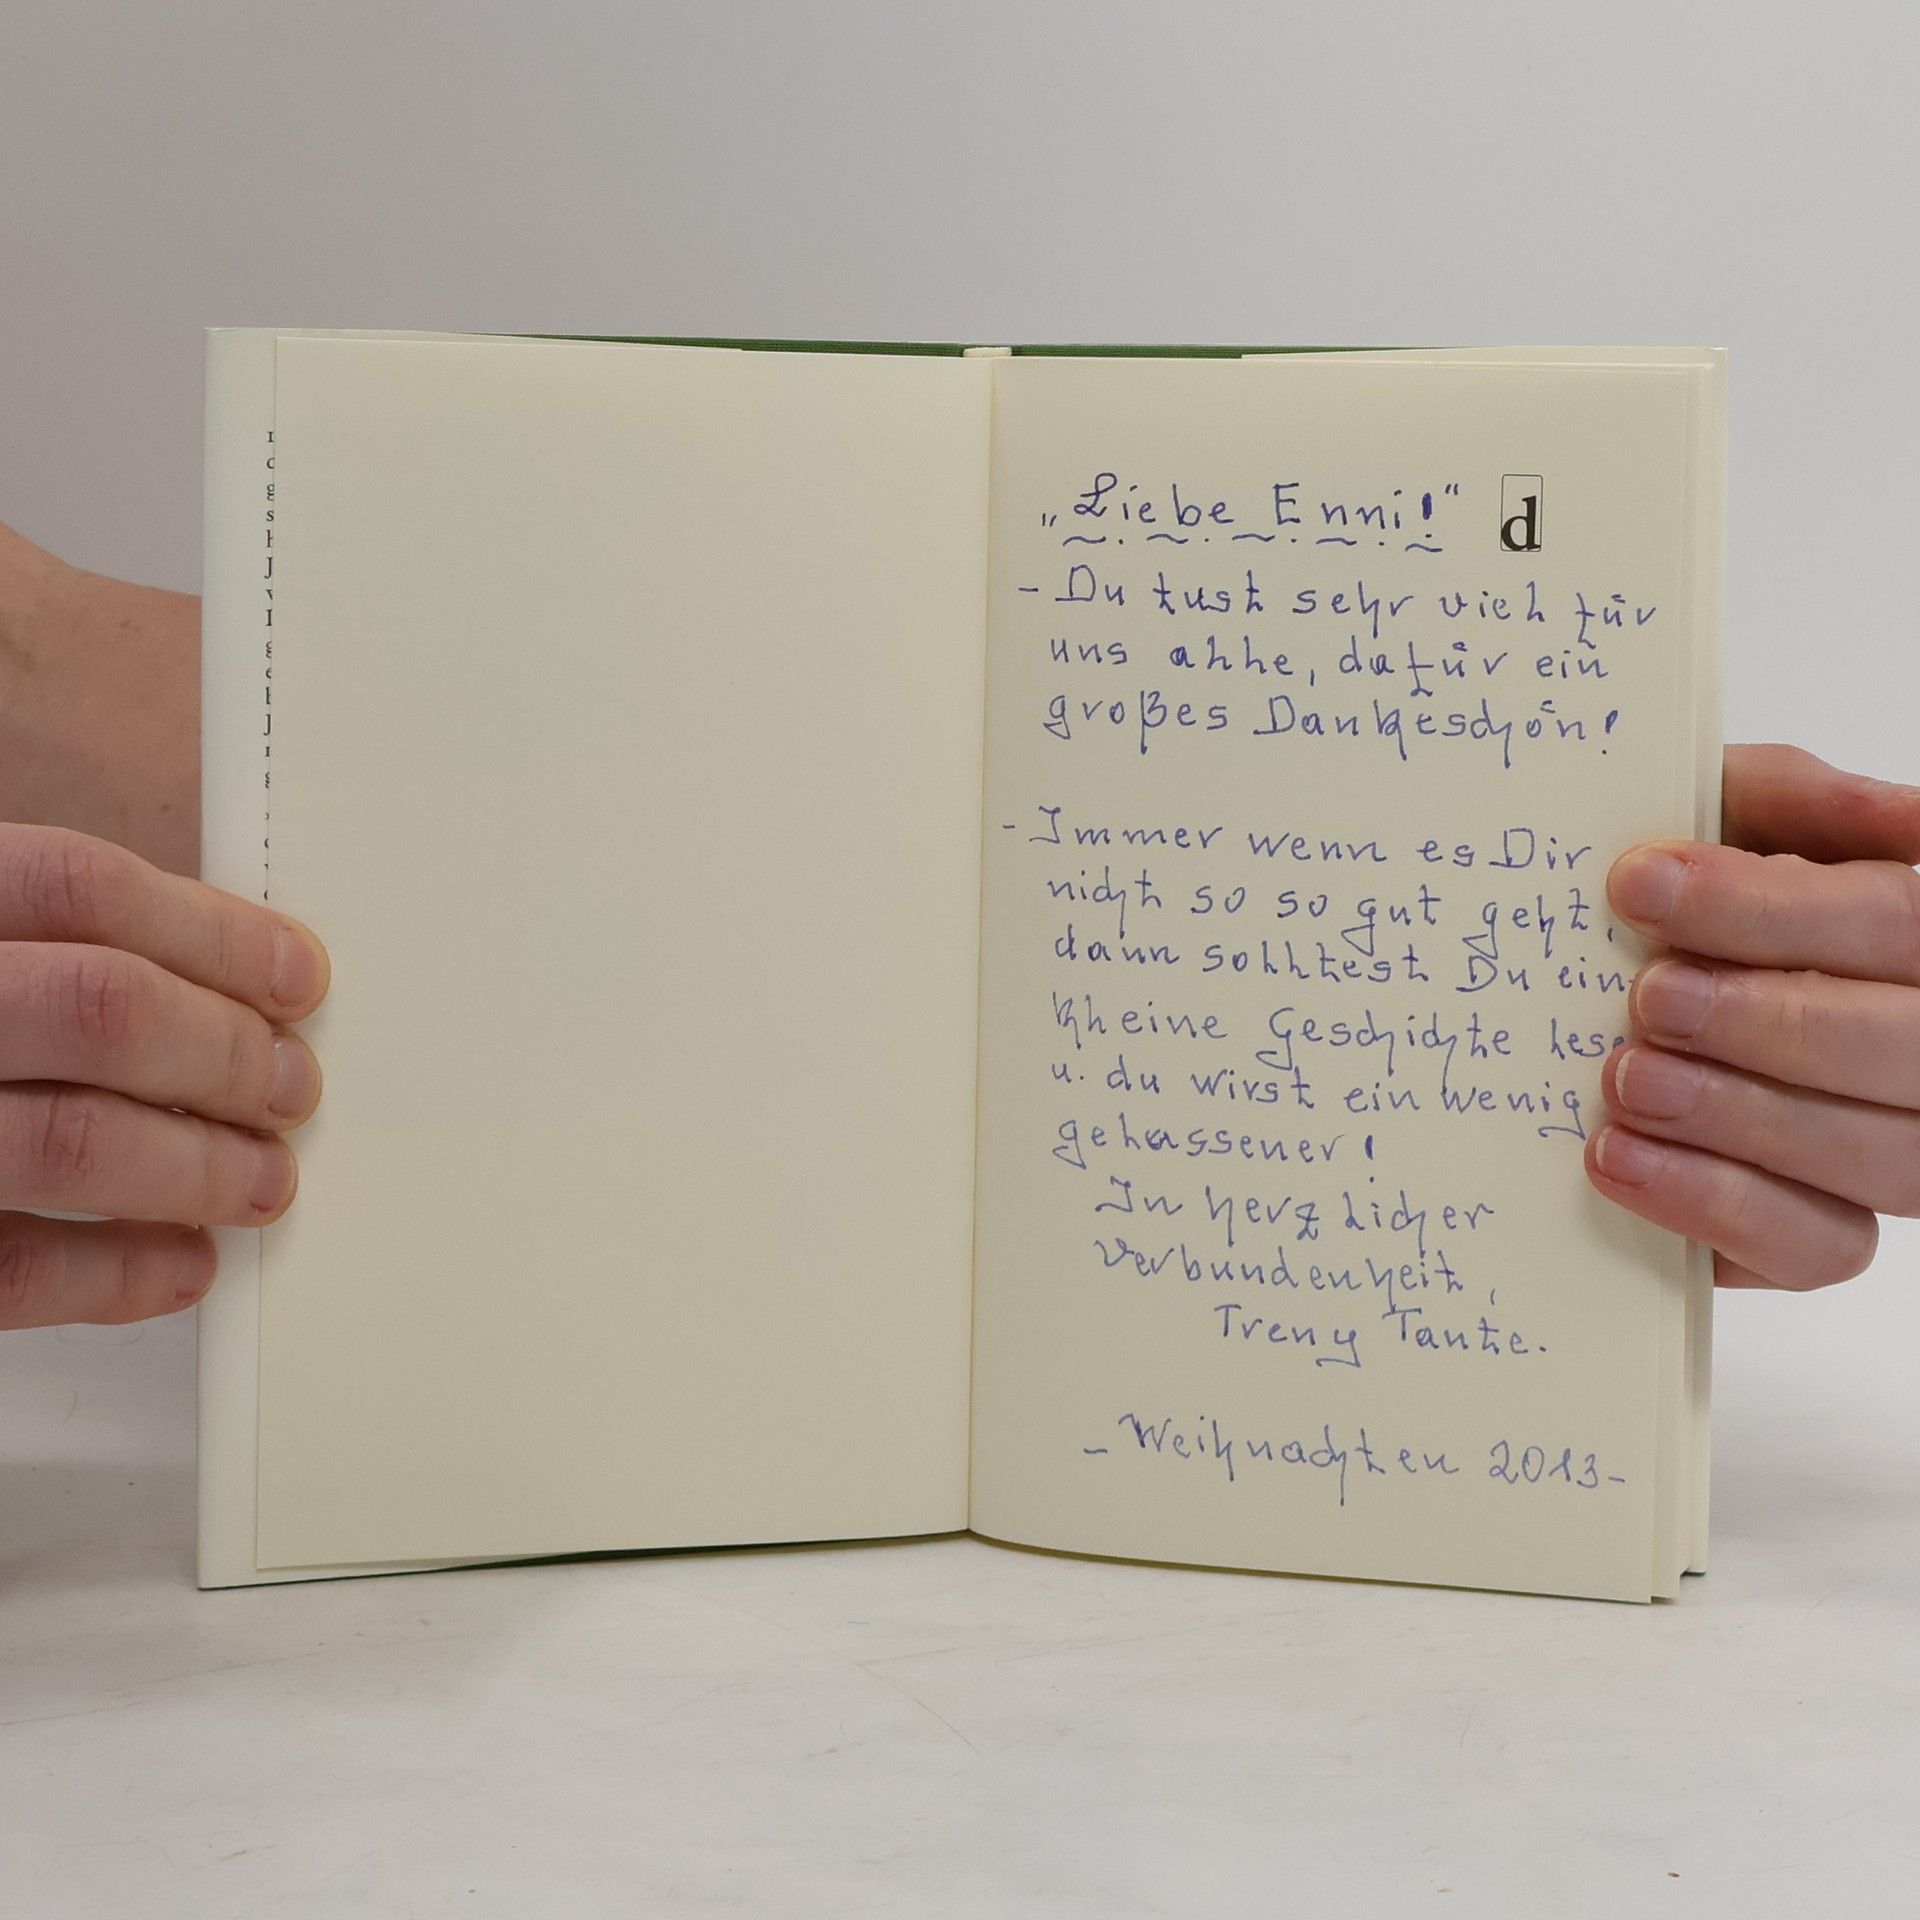 „Liebe Enni!“ d
- Du tust sehr viel für
uns alle, dafür ein
großes Dankeschön!
- Immer wenn es Dir
nicht so so gut geht,
dann solltest Du ein
kleine Geschichte lese
u. du wirst ein wenig
gelassener!
In herzlicher
Verbundenheit,
Treny Tante.
- Weihnachten 2013-